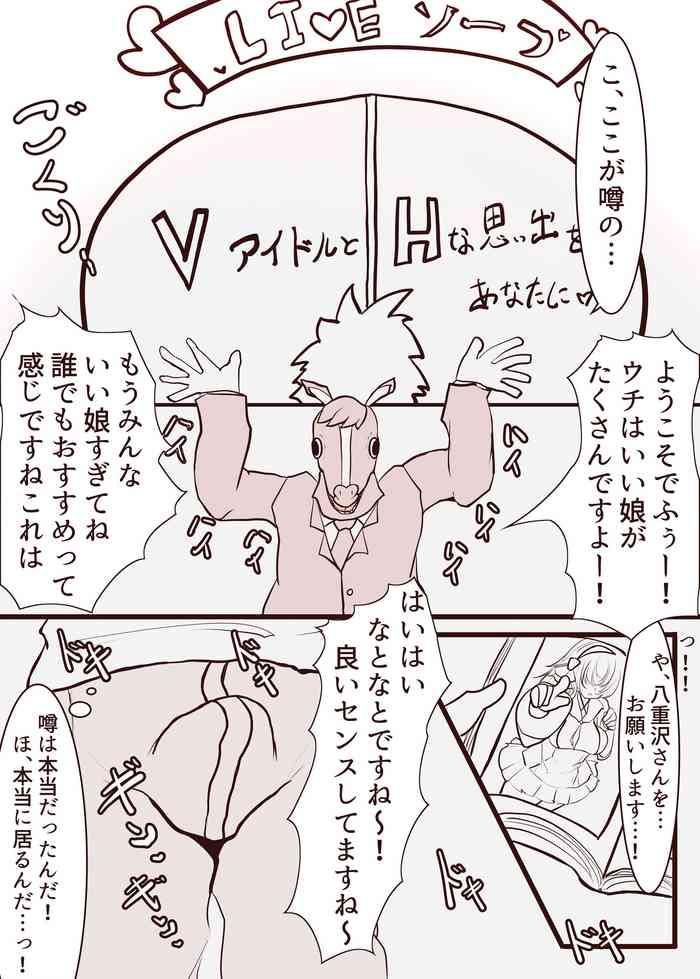 LI♥E ソープ
こ、ここが噂の…
ごくり…
V アイドルと
Hな思い出を
あなたに♡
ようこそでふぅー！
ウチはいい娘が
たくさんですよー！
もうみんな
いい娘すぎてね
誰でもおすすめって
感じですねこれは
ワイ
ワイ
ワイ
ワイ
ワイ
ワイ
っ！！
や、八重沢さんを…
お願いします…！
はいはい
なとなとですね～！
良いセンスしてますね～
ドキ
ドキ
ドキ
ドキ
ギン、
ギン
噂は本当だったんだ！
ほ、本当に居るんだ…っ！